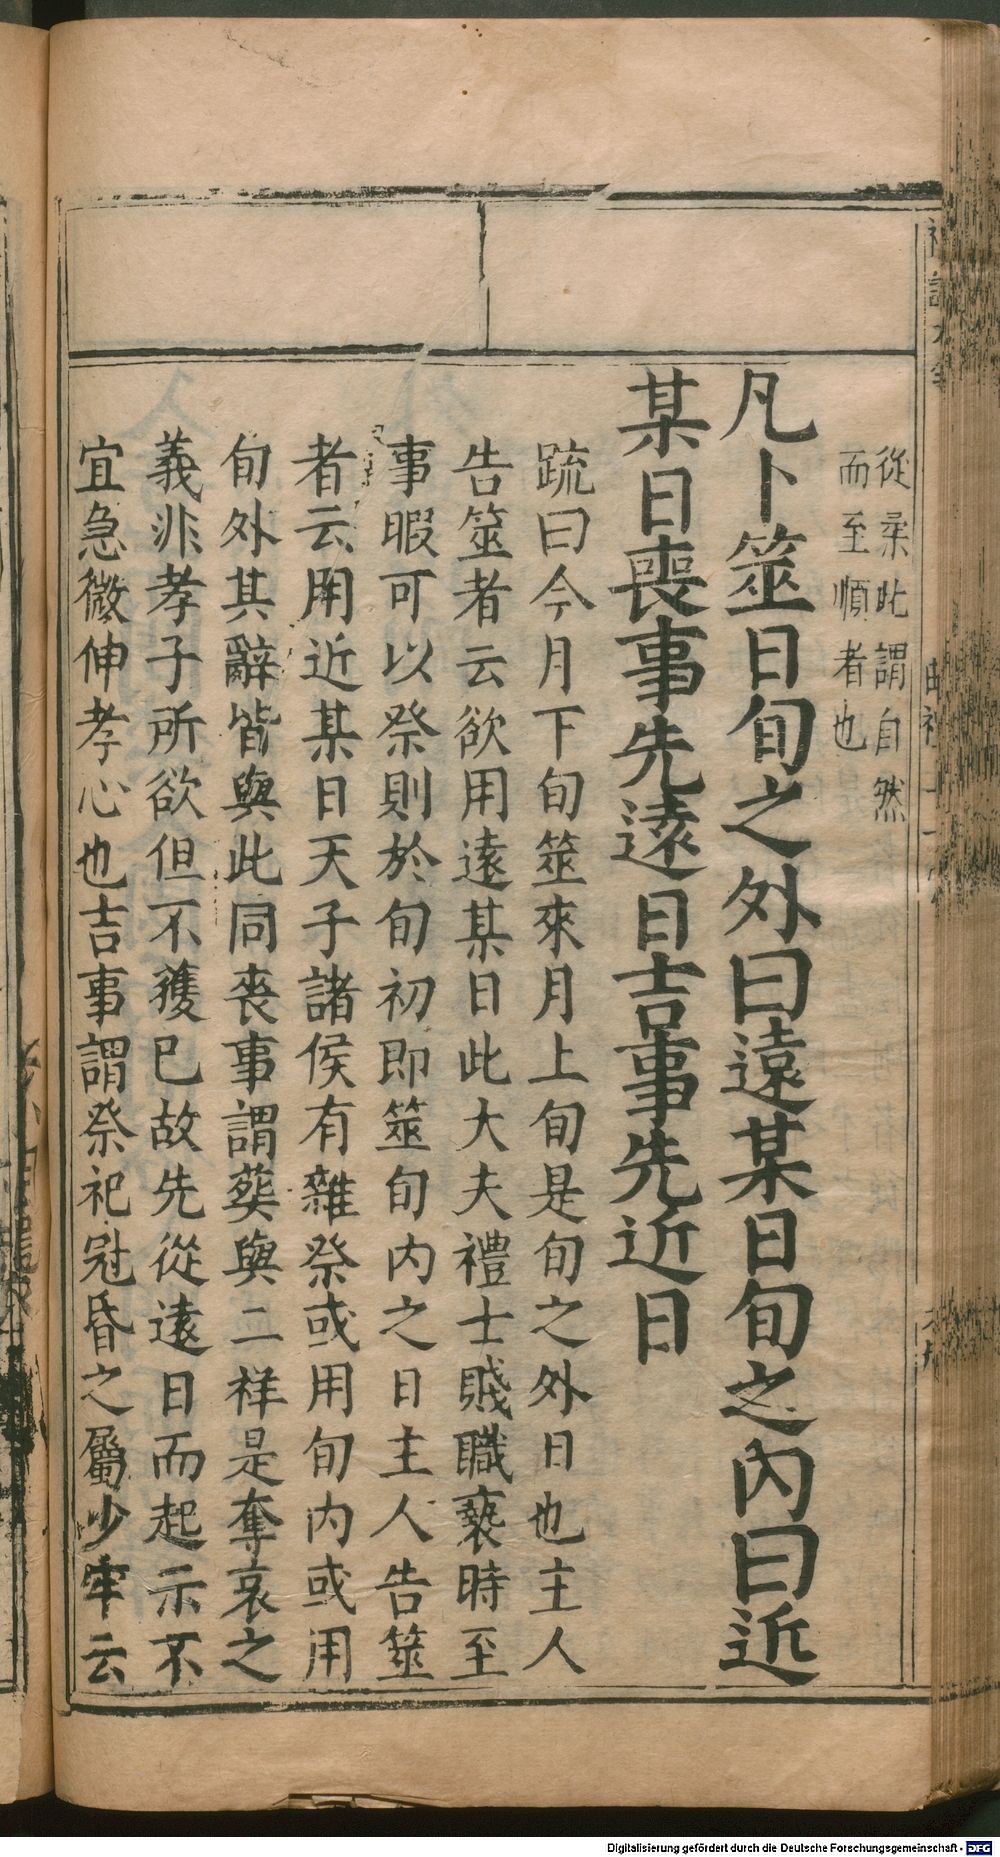 從柔此謂自然
而至順者也
凡卜筮日旬之外曰遠某日旬之內曰近
某日喪事先遠日吉事先近日
疏曰今月下旬筮來月上旬是旬之外日也主人
告筮者云欲用遠某日此大夫禮士賤職褻時至
事暇可以祭則於旬初即筮旬内之日主人告筮
者云用近某日天子諸侯有雜祭或用旬内或用
旬外其辭皆與此同喪事謂葬與二祥是奪哀之
義非孝子所欲但不獲已故先從遠日而起示不
宜急微伸孝心也吉事謂祭祀冠昏之屬少牢云
Digitalisierung gefördert durch die Deutsche Forschungsgemeinschaft - DFG